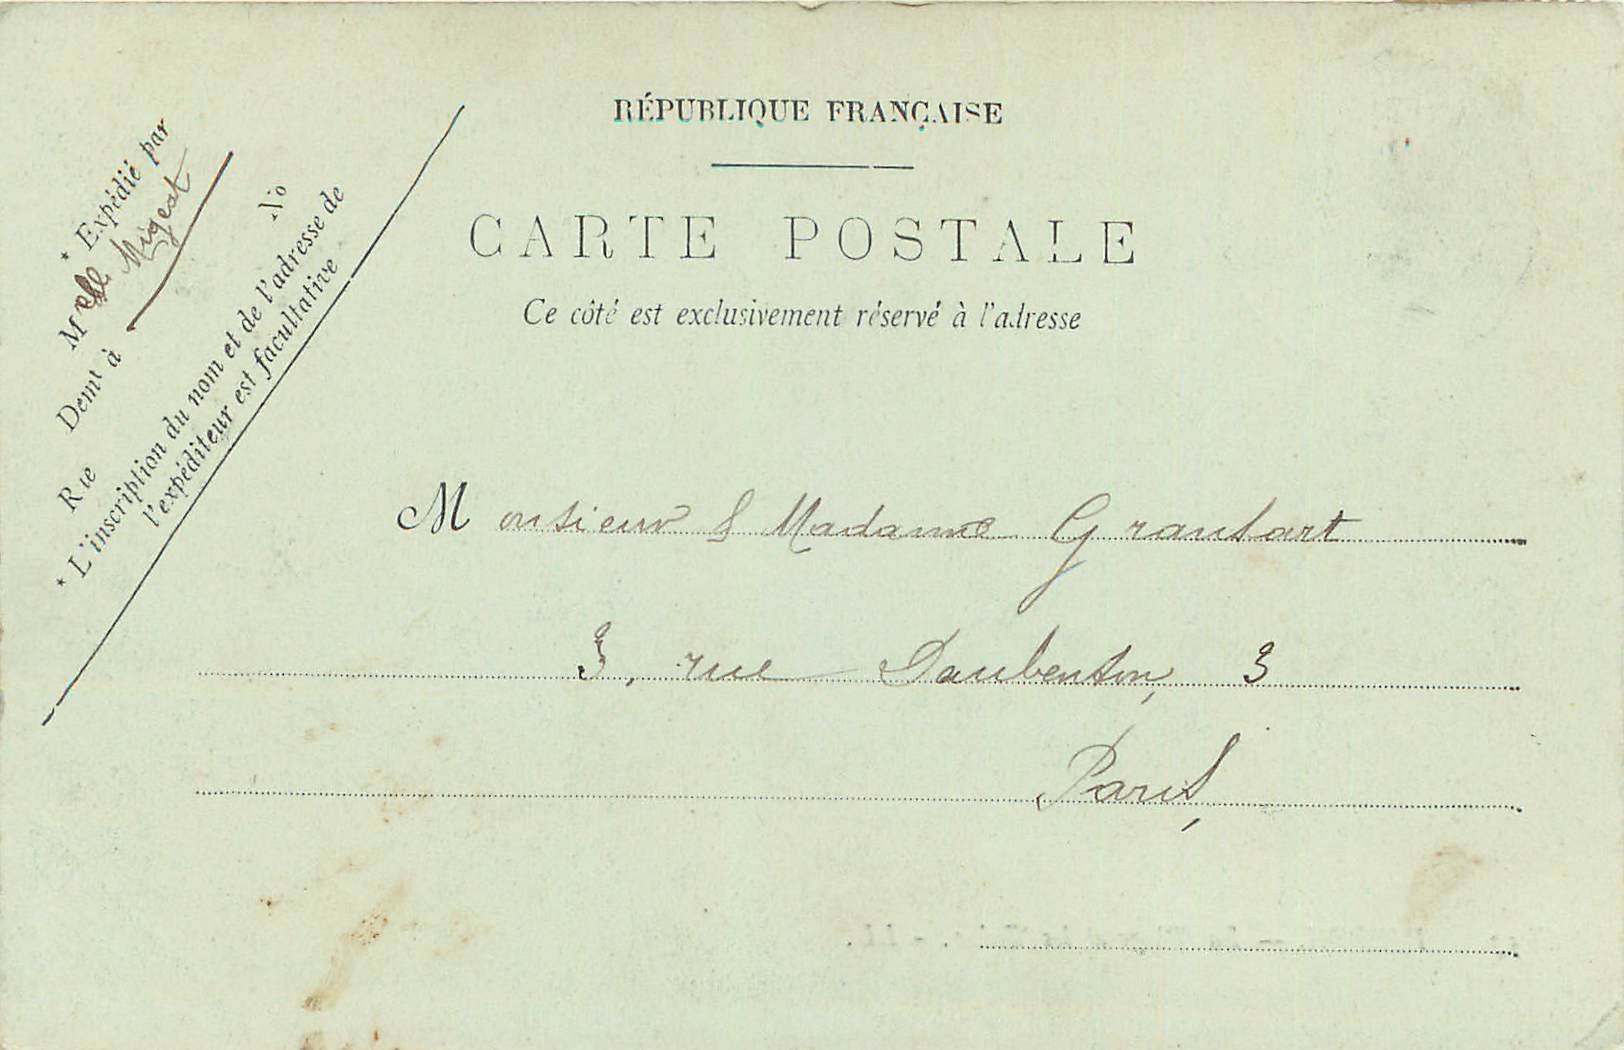 RÉPUBLIQUE FRANÇAISE
CARTE POSTALE
Ce côté est exclusivement réservé à l'adresse
* Expédié par
Melle Migeot
Demt à
Rue No
* L'inscription du nom et de l'adresse de
l'expéditeur est facultative
Monsieur & Madame
3, rue Daubenton, 3
Paris,